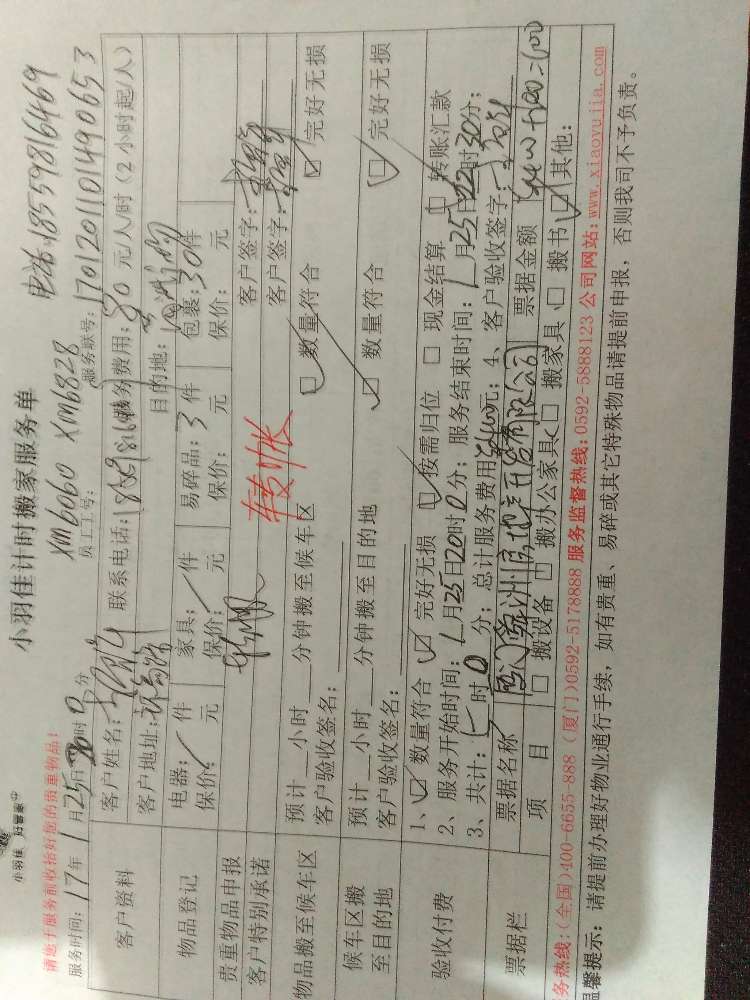 小羽佳 好管家
小羽佳计时搬家服务单
电话:18559816469
请您于服务前收拾好您的贵重物品!
XM6060 XM6828
服务时间:17年1月25日20时0分
员工工号:
服务联号:1701201101490653
客户资料
客户姓名:
联系电话:
服务费用:80元/人/时(2小时起/人)
客户地址:
目的地:
物品登记
电器:/件
家具:/件
易碎品:3件
包裹:30件
保价:
元
保价:
元
保价:
元
保价:
元
贵重物品申报
客户签字:
客户特别承诺
转账
客户签字:
物品搬至候车区
预计__小时__分钟搬至候车区
☑数量符合
☑完好无损
客户验收签名:
候车区搬
至目的地
预计__小时__分钟搬至目的地
☑数量符合
☑完好无损
客户验收签名:
验收付费
1、☑数量符合 ☑完好无损 ☑按需归位 □现金结算 □转账汇款
2、服务开始时间:1月25日20时0分;服务结束时间:1月25日22时30分;
3、共计:时0分;总计服务费用元;4、客户验收签字:
票据栏
票据名称
厦门瀛洲房地产开发有限公司
票据金额
项 目
□搬设备 □搬办公家具 □搬家具 □搬书 ☑其他:
服务热线:(全国)400-6655-888 (厦门)0592-5178888 服务监督热线:0592-5888123 公司网站:www.xiaoyujia.com
温馨提示:请提前办理好物业通行手续,如有贵重、易碎或其它特殊物品请提前申报,否则我司不予负责。